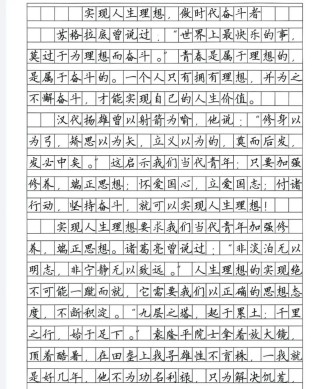 实现人生理想，做时代奋斗者
苏格拉底曾说过，“世界上最快乐的事，
莫过于为理想而奋斗。”青春是属于理想的，
是属于奋斗的。一个人只有拥有理想，并为之
不懈奋斗，才能实现自己的人生价值。
汉代扬雄曾以射箭为喻，他说：“修身以
为弓，矫思以为矢，立义以为的，奠而后发，
发必中矣。”这启示我们当代青年：只要加强
修养，端正思想；怀爱国心，立爱国志；付诸
行动，坚持奋斗，就可以实现人生理想！
实现人生理想要求我们当代青年加强修
养，端正思想。诸葛亮曾说过：“非淡泊无以
明志，非宁静无以致远。”人生理想的实现绝
不可能一蹴而就，它需要我们以正确的思想态
度，不断积淀。“九层之塔，起于累土；千里
之行，始于足下。”袁隆平院士拿着放大镜，
顶着酷暑，在田垄上找寻雄性不育株，一找就
是好几年，他不为功名利禄，只为解决饥荒，